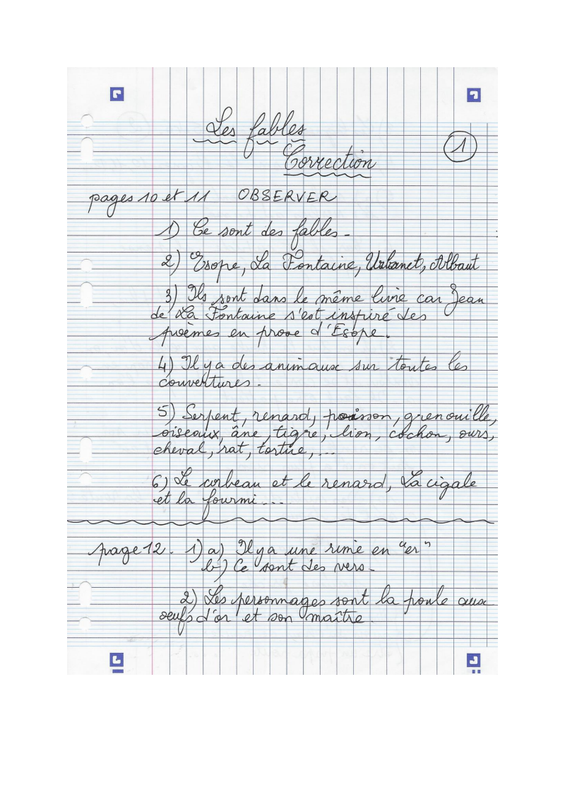 Les fables
Correction
1
pages 10 et 11 OBSERVER
1) Ce sont des fables.
2) Esope, La Fontaine, Urbanet, Albaut
3) Ils sont dans le même livre car Jean
de La Fontaine s'est inspiré des
poèmes en prose d'Esope.
4) Il y a des animaux sur toutes les
couvertures.
5) Serpent, renard, poisson, grenouille,
oiseaux, âne, tigre, lion, cochon, ours,
cheval, rat, tortue, ...
6) Le corbeau et le renard, La cigale
et la fourmi...
page 12. 1) a) Il y a une rime en "er"
b) Ce sont des vers.
2) Les personnages sont la poule aux
oeufs d'or et son maître.